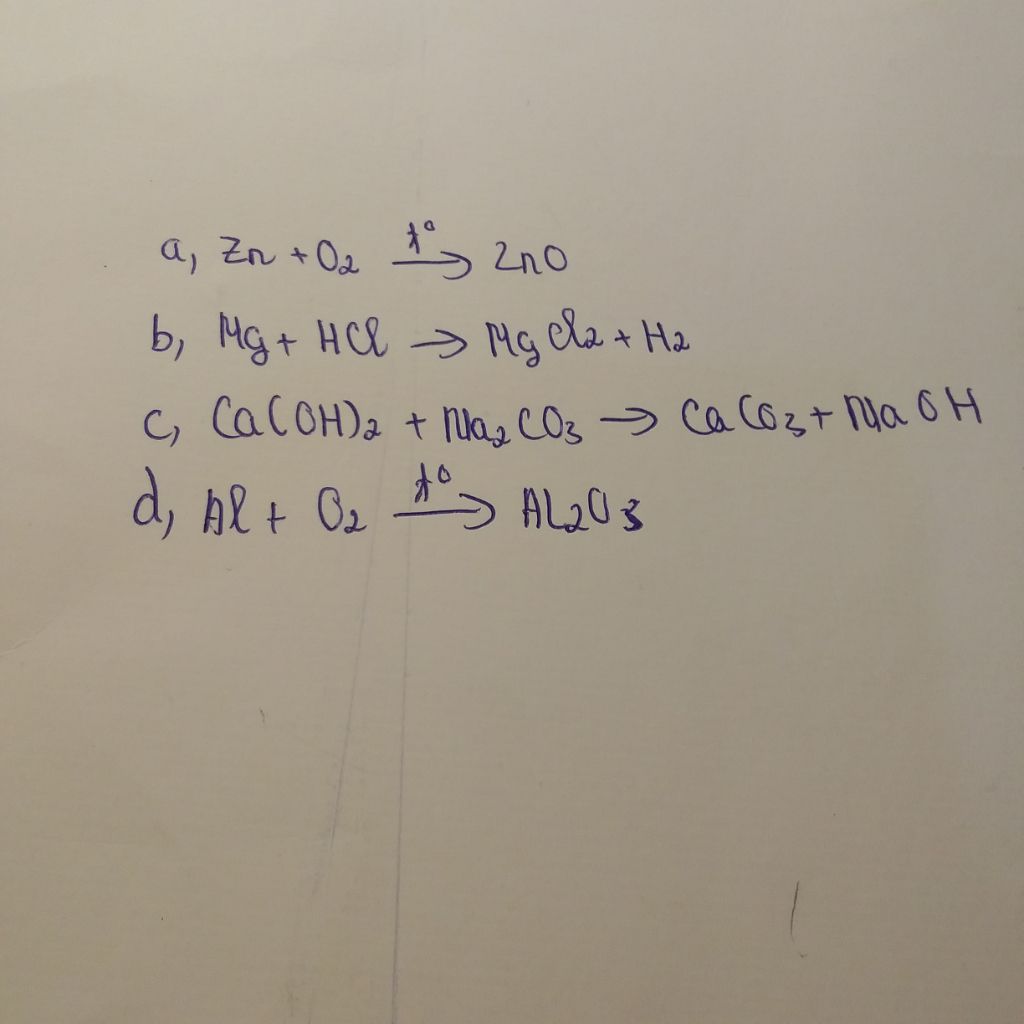 a, Zn + O₂ t° → ZnO
b, Mg + HCl → MgCl₂ + H₂
c, Ca(OH)₂ + Na₂CO₃ → CaCO₃ + NaOH
d, Al + O₂ t° → AL₂O₃